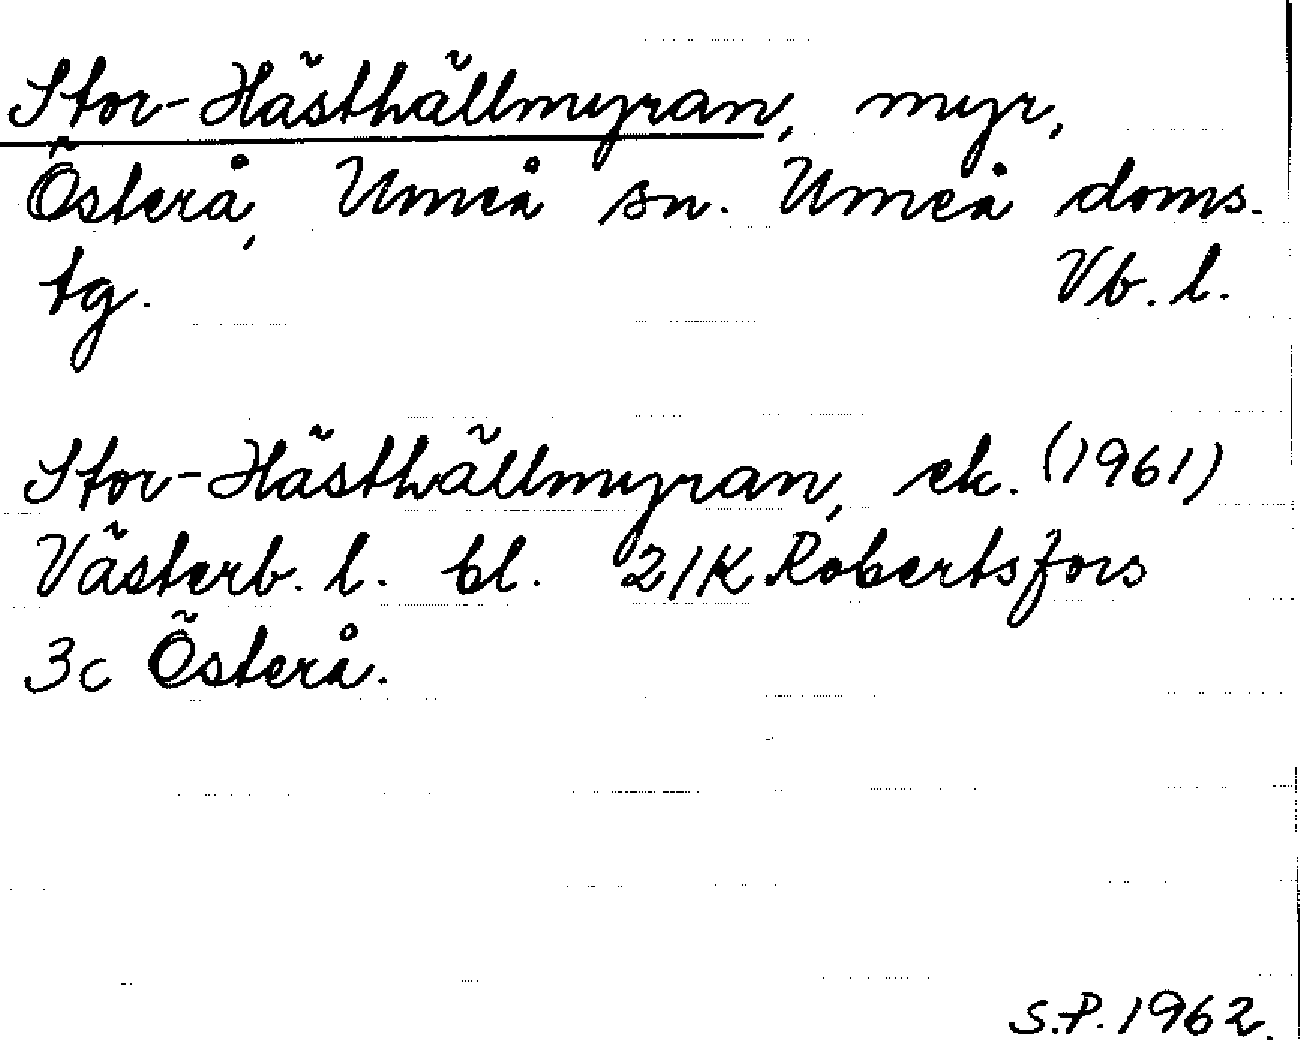 Stor-Hästhällmyran, myr,
Österå, Umeå sn. Umeå doms.
tg. Vb. l.
Stor-Hästhällmyran, ek. (1961)
Västerb. l. bl. 21K Robertsfors
3c Österå.
S.P. 1962.